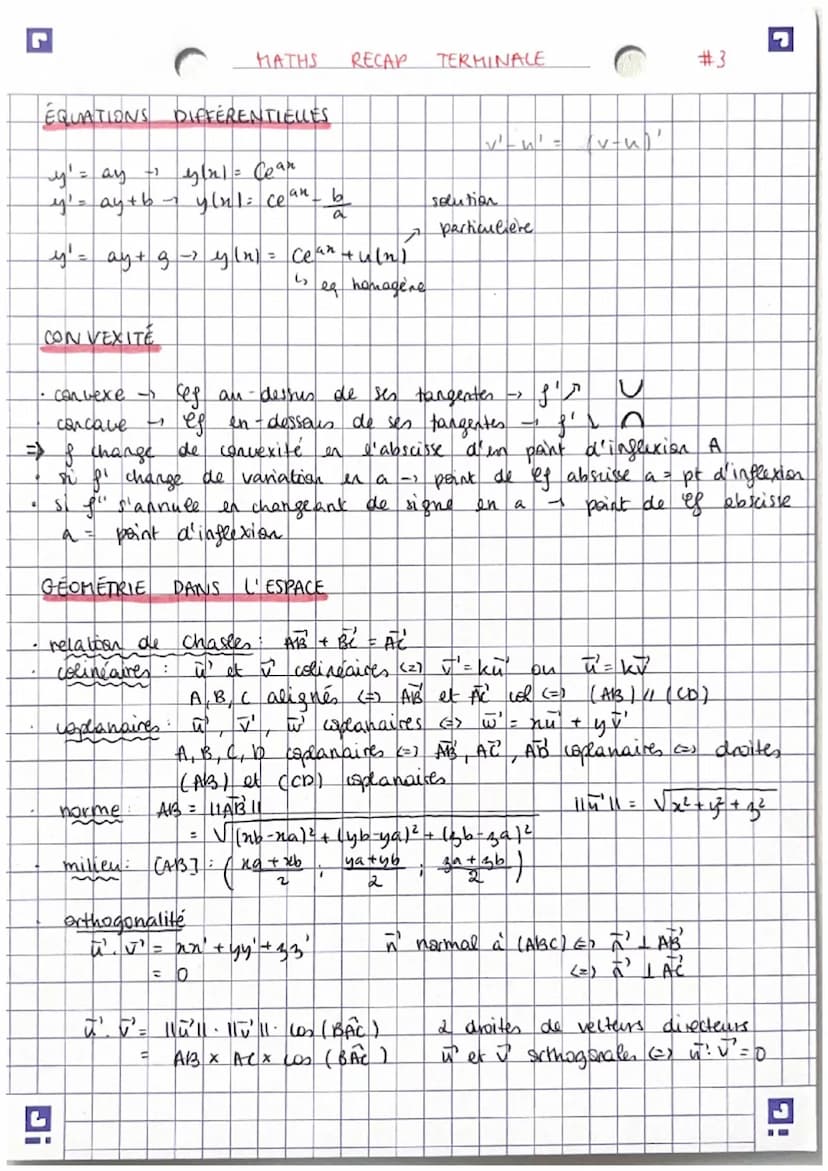 MATHS RECAP TERMINALE #3
ÉQUATIONS DIFFÉRENTIELLES
v' - u' = (v-u)'
y' = ay → y(x) = Ce^ax
y' = ay+b → y(x) = Ce^ax - b/a
solution
particulière
y' = ay + g → y(x) = Ce^ax + u(x)
↳ eq homogène
CONVEXITÉ
· convexe → Cf au-dessus de ses tangentes → f' ↗ ∪
concave → Cf en-dessous de ses tangentes → f' ↘ ∩
⇒ f change de convexité en l'abscisse d'un point d'inflexion A
· si f' change de variation en a → point de Cf abscisse a = pt d'inflexion
· si f'' s'annule en changeant de signe en a → point de Cf abscisse
a = point d'inflexion
GÉOMÉTRIE DANS L'ESPACE
· relation de Chasles : AB⃗ + BC⃗ = AC⃗
· colinéaires : u⃗ et v⃗ colinéaires <=> v⃗ = ku⃗ ou u⃗ = kv⃗
A, B, C alignés <=> AB⃗ et AC⃗ col <=> (AB) // (CD)
· coplanaires : u⃗, v⃗, w⃗ coplanaires <=> w⃗ = xu⃗ + yv⃗
A, B, C, D coplanaires <=> AB⃗, AC⃗, AD⃗ coplanaires <=> droites
(AB) et (CD) coplanaires
· norme : AB = ||AB⃗|| ||u⃗|| = √(x² + y² + z²)
= √((xb-xa)² + (yb-ya)² + (zb-za)²)
· milieu : [AB] : ( xa + xb / 2 ; ya + yb / 2 ; za + zb / 2 )
· orthogonalité
u⃗ . v⃗ = xx' + yy' + zz' n⃗ normal à (ABC) <=> n⃗ ⊥ AB⃗
= 0 <=> n⃗ ⊥ AC⃗
u⃗ . v⃗ = ||u⃗|| . ||v⃗|| . cos (BÂC) 2 droites de vecteurs directeurs
= AB × AC × cos (BÂC) u⃗ et v⃗ orthogonales <=> u⃗ . v⃗ = 0